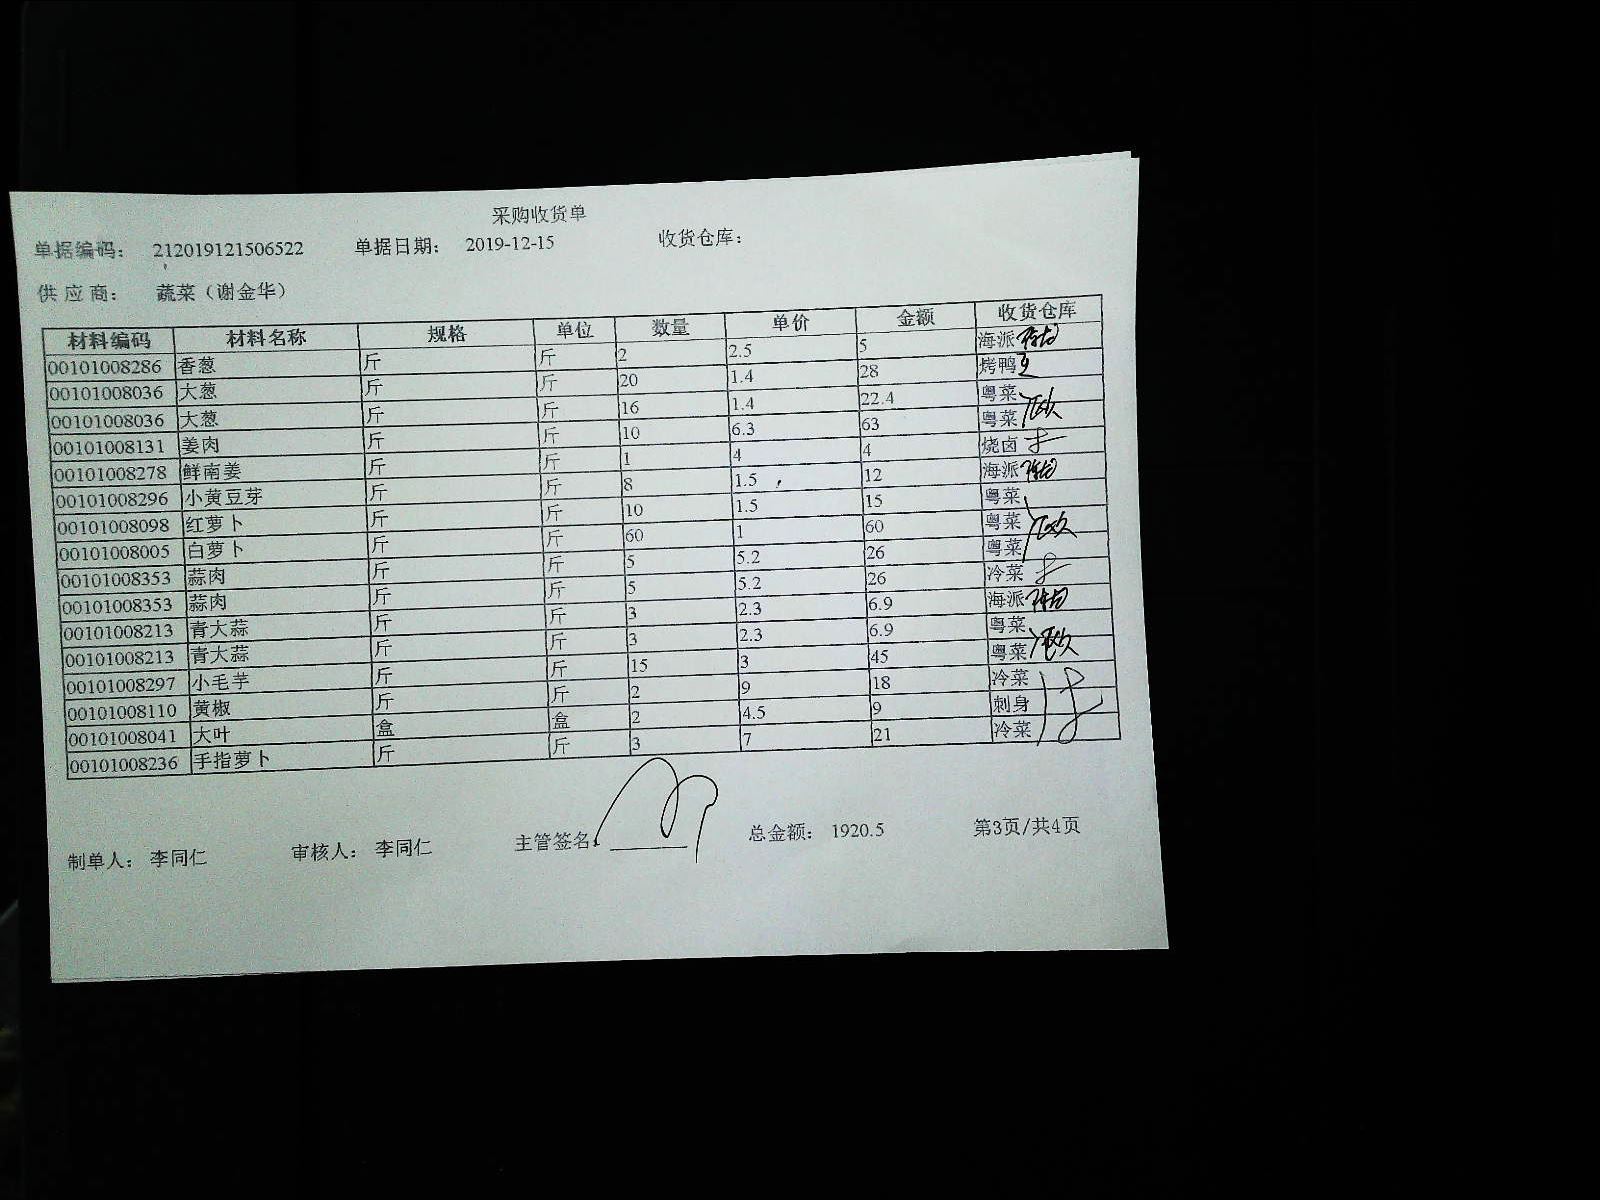 采购收货单
单据编码: 212019121506522 单据日期: 2019-12-15 收货仓库:
供应商: 蔬菜（谢金华）
材料编码 材料名称 规格 单位 数量 单价 金额 收货仓库
00101008286 香葱 斤 斤 2 2.5 5 海派
00101008036 大葱 斤 斤 20 1.4 28 烤鸭
00101008036 大葱 斤 斤 16 1.4 22.4 粤菜
00101008131 姜肉 斤 斤 10 6.3 63 粤菜
00101008278 鲜南姜 斤 斤 1 4 4 烧卤
00101008296 小黄豆芽 斤 斤 8 1.5 12 海派
00101008098 红萝卜 斤 斤 10 1.5 15 粤菜
00101008005 白萝卜 斤 斤 60 1 60 粤菜
00101008353 蒜肉 斤 斤 5 5.2 26 粤菜
00101008353 蒜肉 斤 斤 5 5.2 26 冷菜
00101008213 青大蒜 斤 斤 3 2.3 6.9 海派
00101008213 青大蒜 斤 斤 3 2.3 6.9 粤菜
00101008297 小毛芋 斤 斤 15 3 45 粤菜
00101008110 黄椒 斤 斤 2 9 18 冷菜
00101008041 大叶 盒 盒 2 4.5 9 刺身
00101008236 手指萝卜 斤 斤 3 7 21 冷菜
制单人: 李同仁 审核人: 李同仁 主管签名: 总金额: 1920.5 第3页/共4页